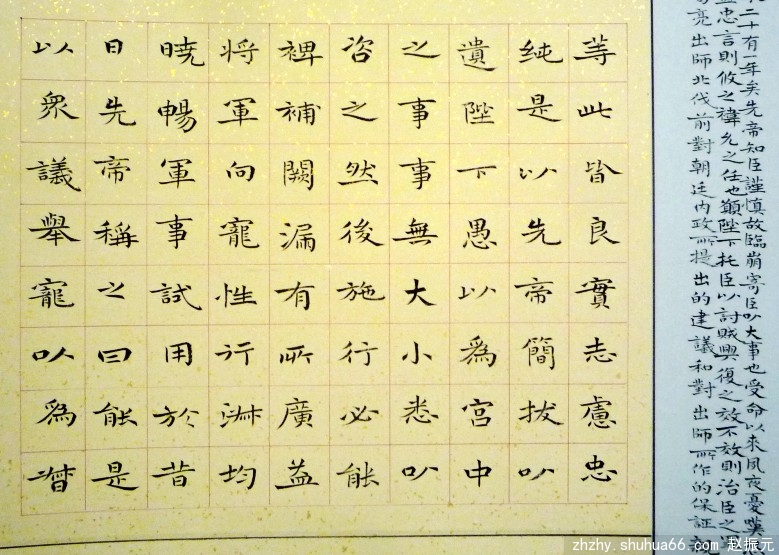 二十有一年矣先帝知臣謹慎故臨崩寄臣以大事也受命以来夙夜憂嘆
忠言則攸之禕允之任也願陛下托臣以討賊興復之效不效則治臣之
亮出師北伐前對朝廷内政所提出的建議和對出師所作的保証
等此皆良實志慮忠
纯是以先帝簡拔以
遺陛下愚以為宮中
之事事無大小悉以
咨之然後施行必能
裨補闕漏有所廣益
将軍向寵性行淋均
暁暢軍事試用於昔
日先帝稱之曰能是
以衆議舉寵以為督
zhzhy.shuhua66.com 赵振元